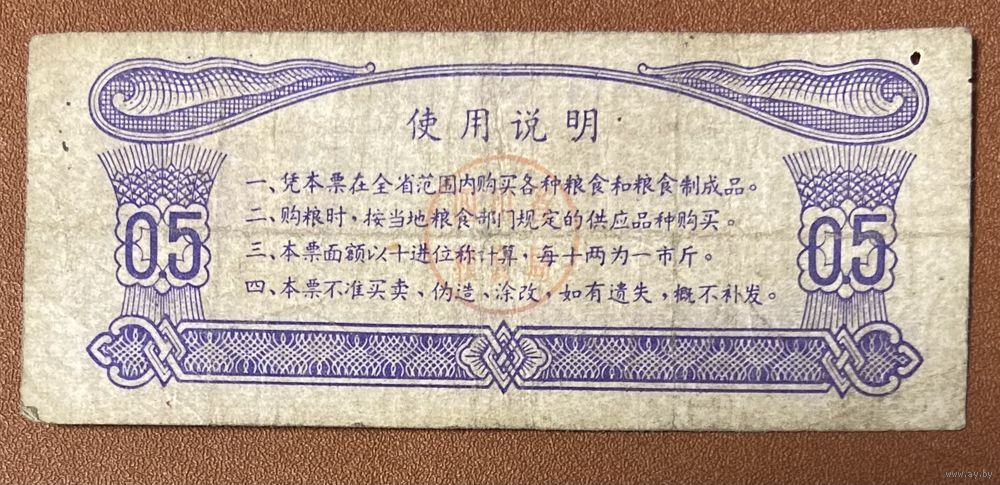 使用说明
一、凭本票在全省范围内购买各种粮食和粮食制成品。
二、购粮时，按当地粮食部门规定的供应品种购买。
三、本票面额以十进位称计算，每十两为一市斤。
四、本票不准买卖、伪造、涂改，如有遗失，概不补发。
0.5
0.5
www.ay.by